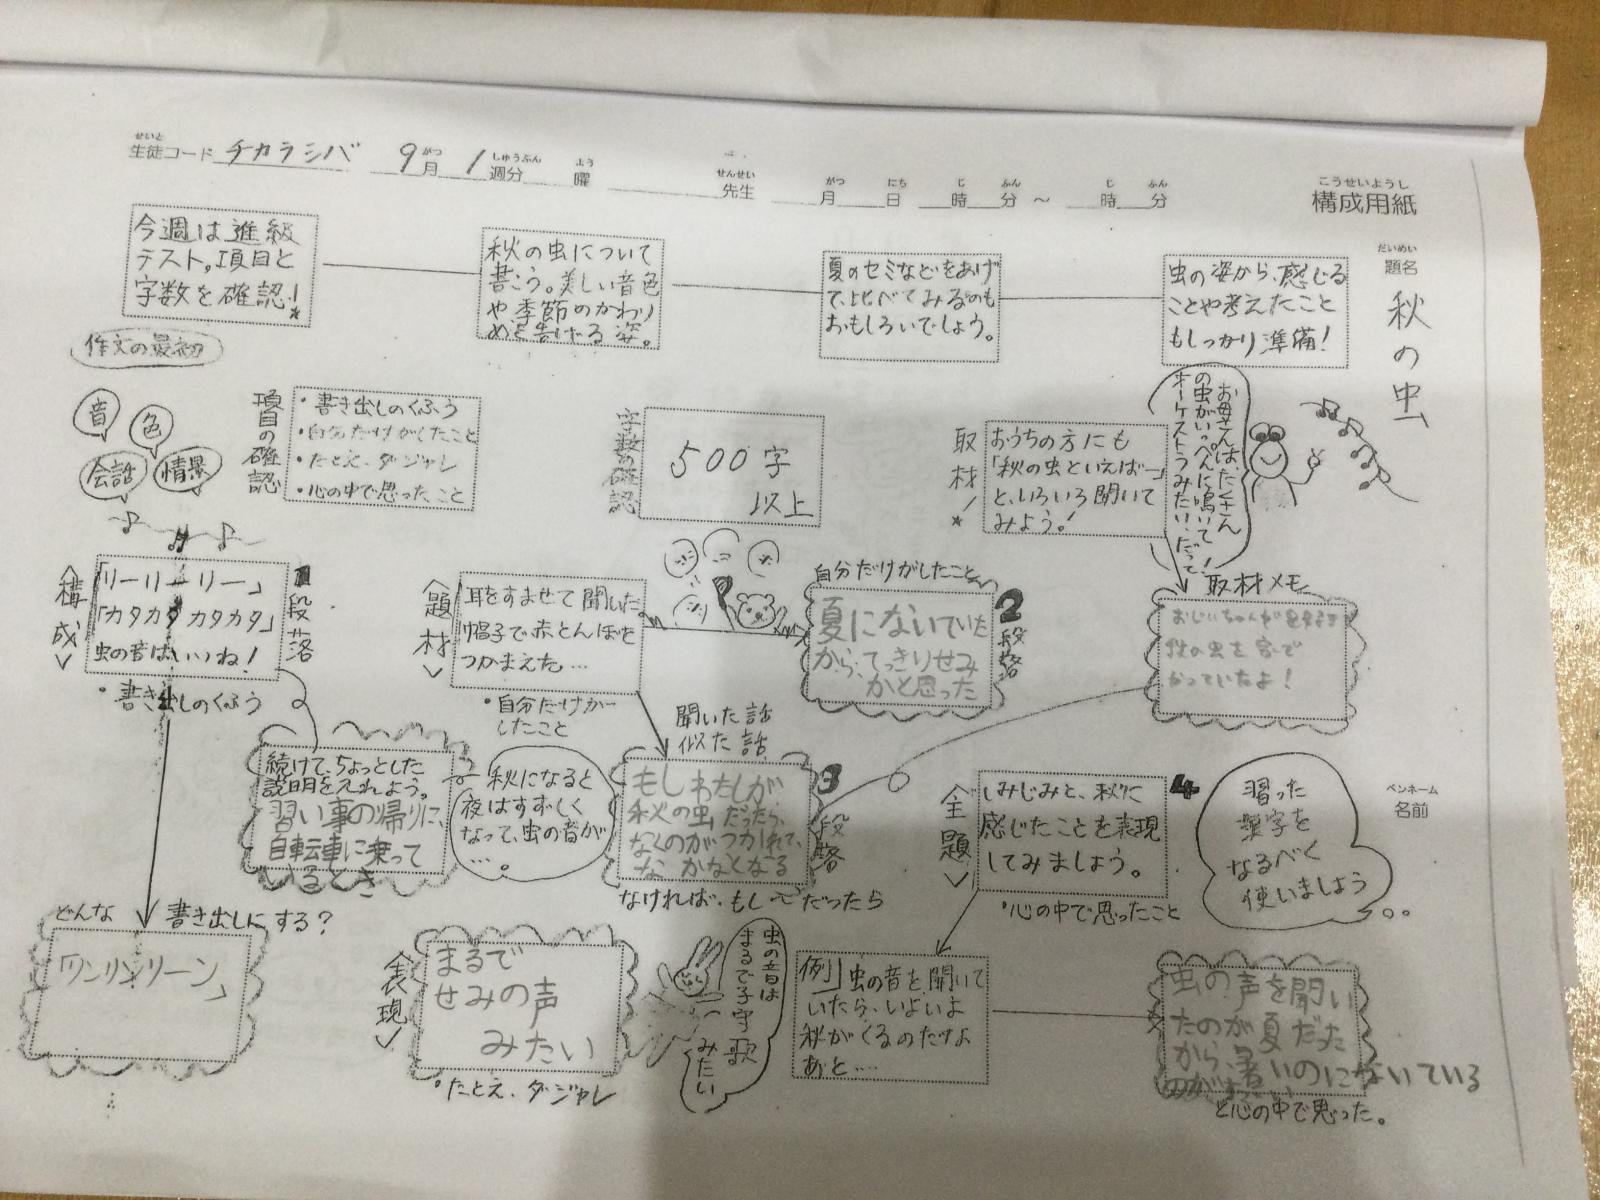 せいと がつ しゅうぶん よう せんせい がつ にち じ ふん じ ふん
生徒コード チカラシバ 9月 1週分 曜 先生 月 日 時 分 ～ 時 分
こうせいようし
構成用紙
だいめい
題名
秋の虫
今週は進級
テスト。項目と
字数を確認!
秋の虫について
書こう。美しい音色
や、季節のかわり
めを告げる姿。
夏のセミなどをあげ
て、比べてみるのも
おもしろいでしょう。
虫の姿から、感じる
ことや考えたこと
もしっかり準備!
作文の最初
音
色
会話
情景
項目の確認
・書き出しのくふう
・自分だけがしたこと
・たとえ、ダジャレ
・心の中で思ったこと
字数の確認
500字
以上
取材!
おうちの方にも
「秋の虫といえばー」
と、いろいろ聞いて
みよう!
お母さんは、たくさん
の虫がいっぺんに鳴いて
オーケストラみたい、だって!
〈構成〉
「リーリーリー」
「カタカタカタカタ」
虫の音はいいね!
1段落
・書き出しのくふう
〈題材〉
耳をすませて聞いた。
帽子で赤とんぼを
つかまえた…
・自分だけがー
したこと
自分だけがしたこと
夏にないていた
から、てっきりせみ
かと思った
2段落
取材メモ
おじいちゃんが
秋の虫を家で
かっていたよ!
続けて、ちょっとした
説明をえれよう。
習い事の帰りに、
自転車に乗って
いるとき
秋になると
夜はすずしく
なって、虫の音が
…。
聞いた話
似た話
もしわたしが
秋の虫だったら、
なくのがつかれて、
な かなとなる
3段落
なければ・もし〜だったら
〈主題〉
しみじみと、秋に
感じたことを表現
してみましょう。
4
・心の中で思ったこと
習った
漢字を
なるべく
使いましよう
ペンネーム
名前
どんな 書き出しにする?
「リンリンリーン」
〈表現〉
まるで
せみの声
みたい
・たとえ、ダジャレ
虫の音は
まるで子守歌
みたい
例」虫の音を聞いて
いたら、いよいよ
秋がくるのだなよ
あと….
虫の声を聞い
たのが夏だった
から、暑いのにないている
と心の中で思った。